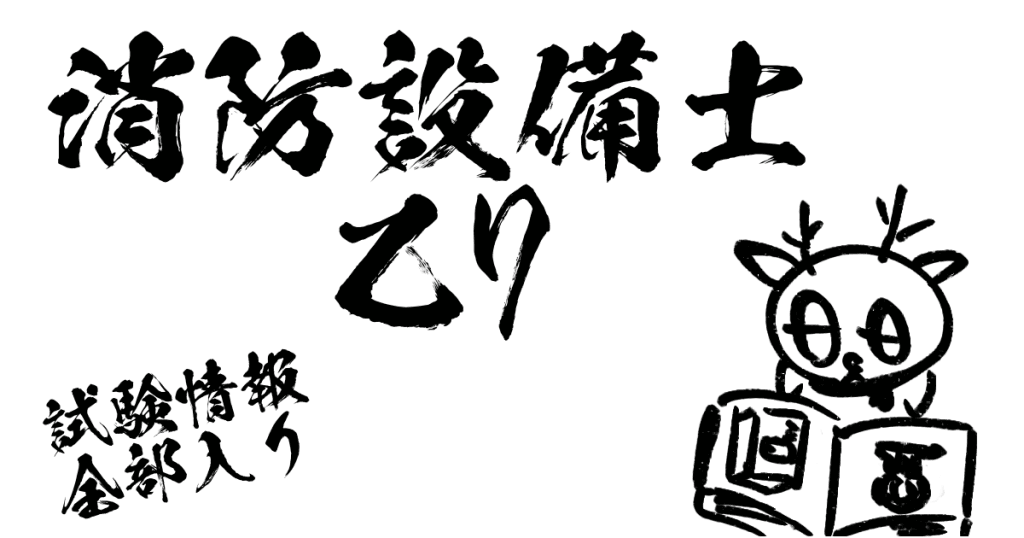 消防設備士
乙り
試験情報
全部入り